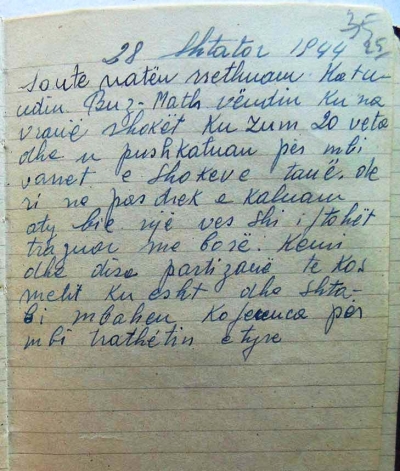 28 Shtator 1944
sonte natën rrethuam Katu-
ndin Buz-Math vëndin ku na
vranë shokët ku zum 20 veta
dhe u pushkatuan për mbi
varret e shokeve tanë. dhe
si na pas drek e kaluam
aty bie një ves shi i ftohët
trazuar me borë. Kemi
dhe disa partizanë te Kos
metit ku esht dhe shta-
bi mbahen Koferenca për
mbi trathëtin e tyre